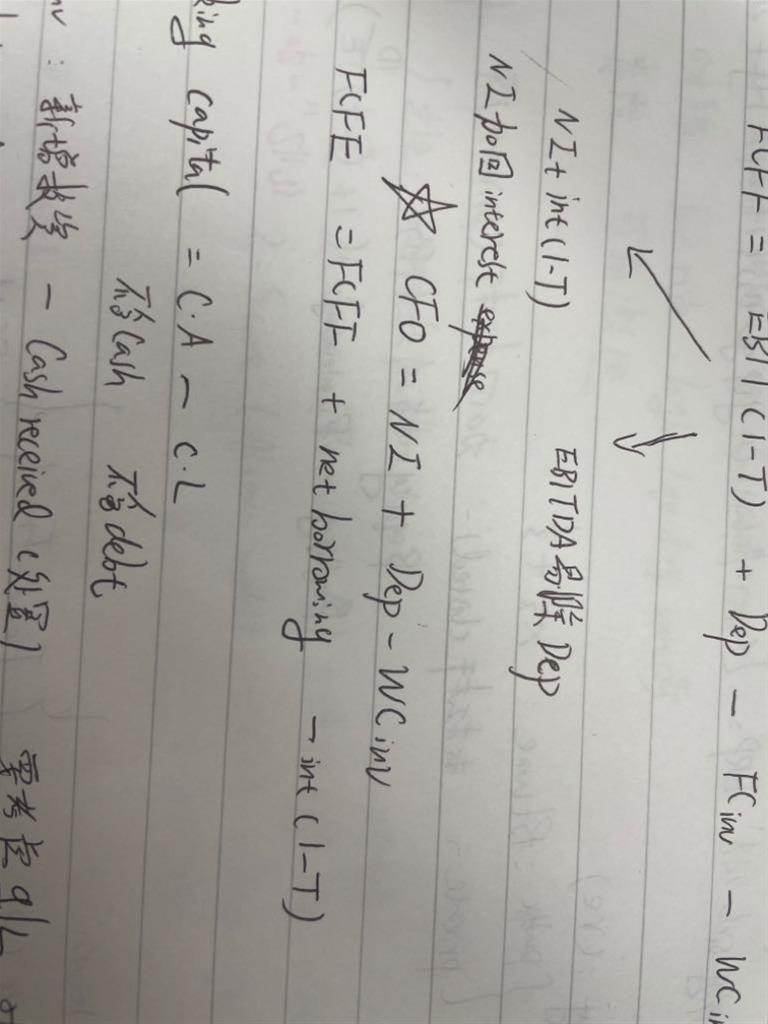 FCFF = EBIT (1-T) + Dep - FCinv - WCin
NI + int(1-T) EBITDA 易除 Dep
NI加回 interest
☆ CFO = NI + Dep - WCinv
FCFE = FCFF + net borrowing - int(1-T)
king Capital = C.A - C.L
不含Cash 不含debt
inv : 新增投资 - Cash received (处置) 要考虑 g/L